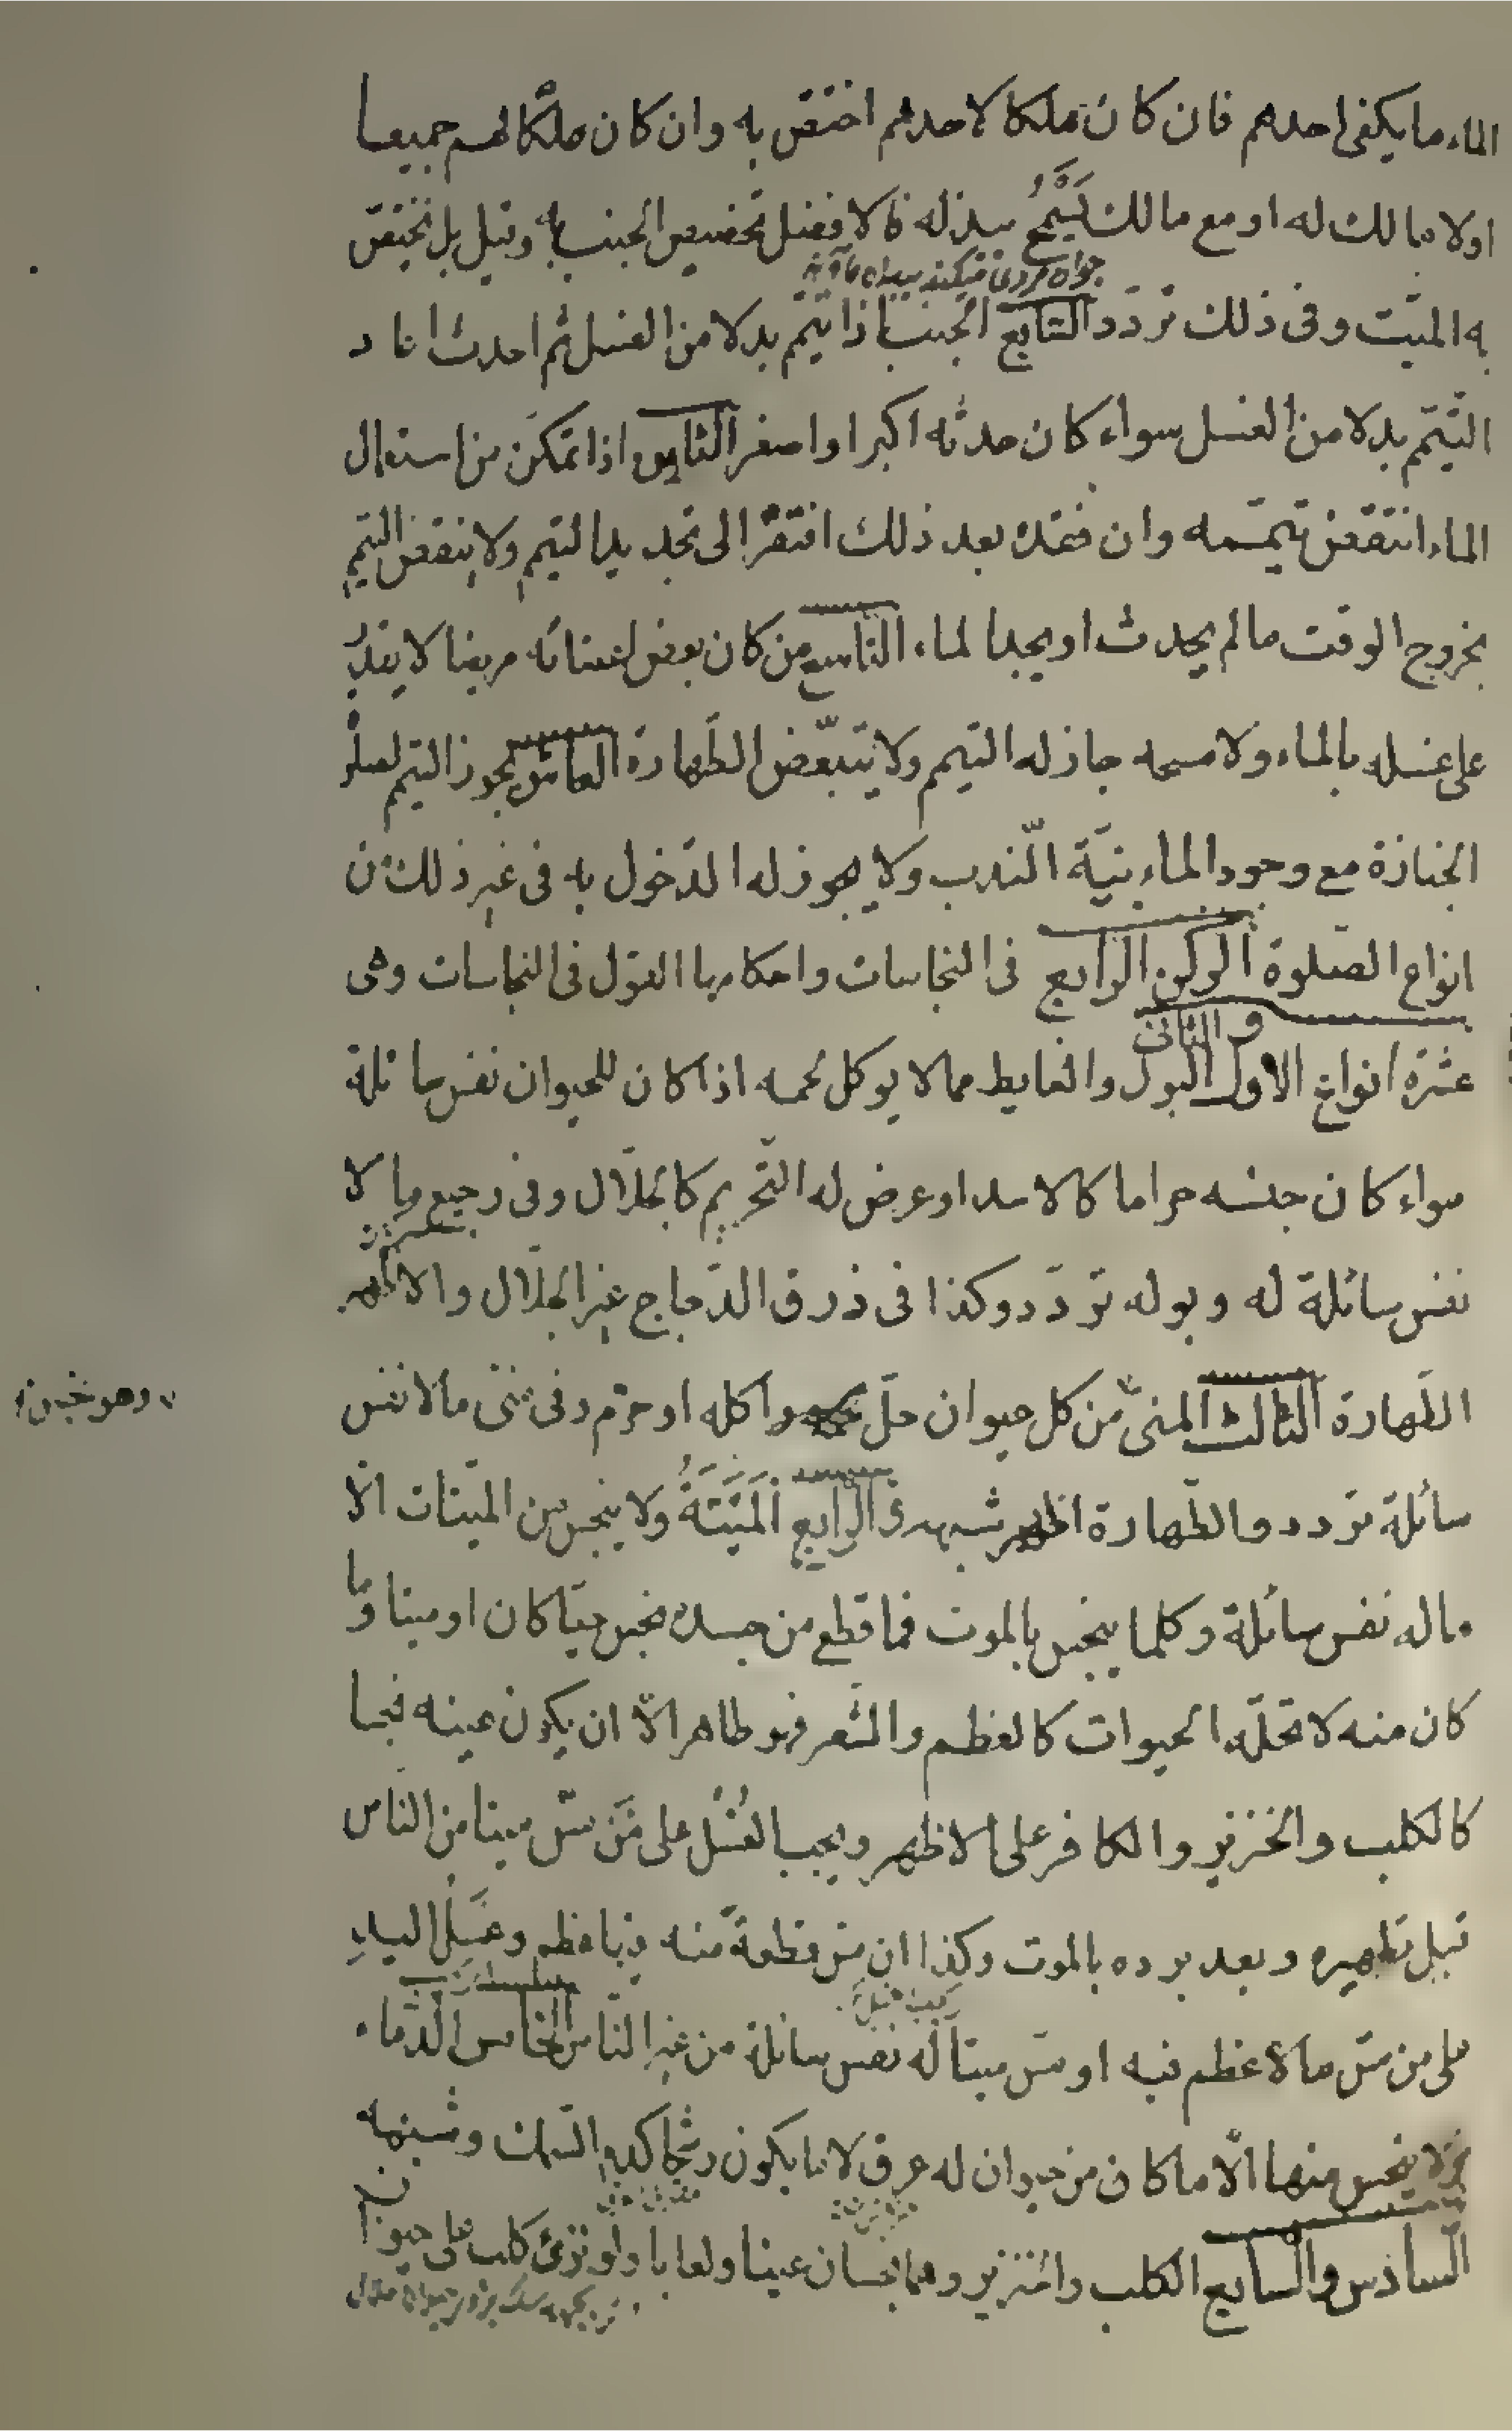 الماء ما يكفى احدهم فان كان ملكا لاحدهم اختص به وان كان ملكًا لهم جميعا
اولا مالك له او مع مالك يسمح ببذله فالافضل تخصيص الجنب به وقيل بل يختص
به الميّت وفى ذلك تردّد السّابع الجنب اذا تيمّم بدلا من الغسل ثم احدث اعاد
التّيمّم بدلا من الغسل سواء كان حدثه اكبر او اصغر الثامن اذا تمكّن من استعمال
الماء انتقض تيمّمه وان فقده بعد ذلك افتقر الى تجديد التيمم ولا ينتقض التيمم
بخروج الوقت ما لم يحدث او يجد الماء التّاسع من كان بعض اعضائه مريضا لا يقدر
على غسله بالماء ولا مسحه جاز له التيمم ولا يتبعّض الطّهارة العاشر يجوز التيمم لصلوة
الجنازة مع وجود الماء بنيّة النّدب ولا يجوز له الدّخول به فى غير ذلك من
انواع الصّلوة الركن الرابع فى النجاسات واحكامها القول فى النجاسات وهى
عشرة انواع الاول والثانى البول والغايط مما لا يوكل لحمه اذا كان للحيوان نفس سائلة
سواء كان جنسه حراما كالاسد او عرض له التّحريم كالجلّال وفى رجيع ما لا
نفس سائلة له وبوله تردّد وكذا فى ذرق الدّجاج غير الجلّال والاظهر
الطّهارة الثالث المنىّ من كل حيوان حلّ اكله او حرّم وفى منى ما لا نفس
سائلة تردد والطّهارة اظهر الرّابع المَيْتَةُ ولا ينجس من الميتات الّا
ماله نفس سائلة وكلما ينجس بالموت فما قطع من جسده نجس حيّا كان او ميتا وما
كان منه لا تحلّه الحيوات كالعظم والشّعر فهو طاهر الّا ان يكون عينه نجسا
كالكلب والخنزير والكافر على الاظهر ويجب الغُسْلُ على مَن مسّ ميتا من النّاس
قبل تطهيره وبعد برده بالموت وكذا ان مسّ قطعة منه فيها عظم وغَسْلُ اليدِ
على من مسّ ما لا عظم فيه او مسّ ميتا له نفس سائلة من غير النّاس الخامس الدّماء
ولا ينجس منها الّا ما كان من حيوان له عرق لا ما يكون رشحا كدم السّمك وشبهه
السّادس والسّابع الكلب والخنزير وهما نجسان عينا ولعابا ولو نزى كلب على حيوان